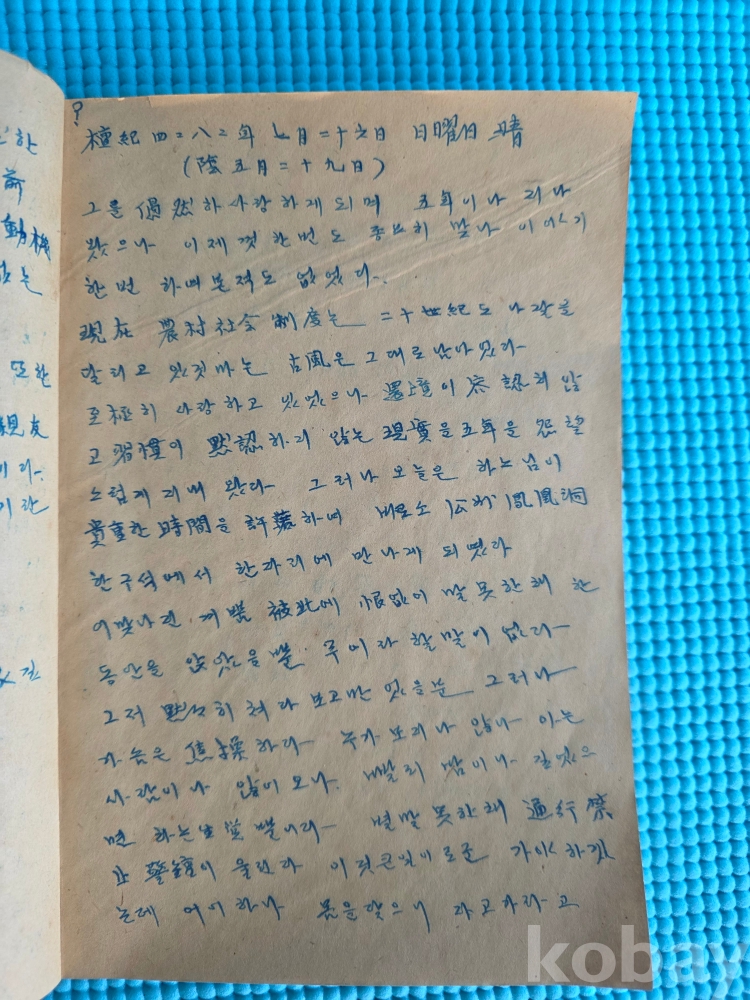 한
前
動機
는
또한
親友
이다.
기란
?
檀紀四二八二年七月二十六日 日曜日 晴
(陰五月二十九日)
그를 偶然하 사랑하게 되며 五年이나 지나
왔으나 이제껏 한번도 종용히 만나 이야기
한번 하여본적도 없었다.
現在 農村社会制度는 二十世紀도 나갈을
달리고 있것마는 古風은 그대로 남아있다
至極히 사랑하고 있었으나 還境이 容認치 않
고 習慣이 默認하지 않는 現實을 五年을 怨望
스럽게 지내 왔다 그러나 오늘은 하느님이
貴重한 時間을 許諾하여 비로소 公州 鳳凰洞
한구석에서 한자리에 만나게 되였다
어쨋나면 彼此에 恨없이 말 못한채 한
동안을 앉았을뿐 무어라 할말이 없다
그저 默々히 쳐다보고만 있을뿐 그러나
가슴은 焦燥하다 누가 보지나 않나 아는
사람이나 않이오나. 빨리 밤이나 길었으
면 하는 生覺뿐이다 별말 못한채 通行禁
止 警鐘이 울린다 가야하겠
는데 어이하나 몸을 닿으니 자고가라고
kobay